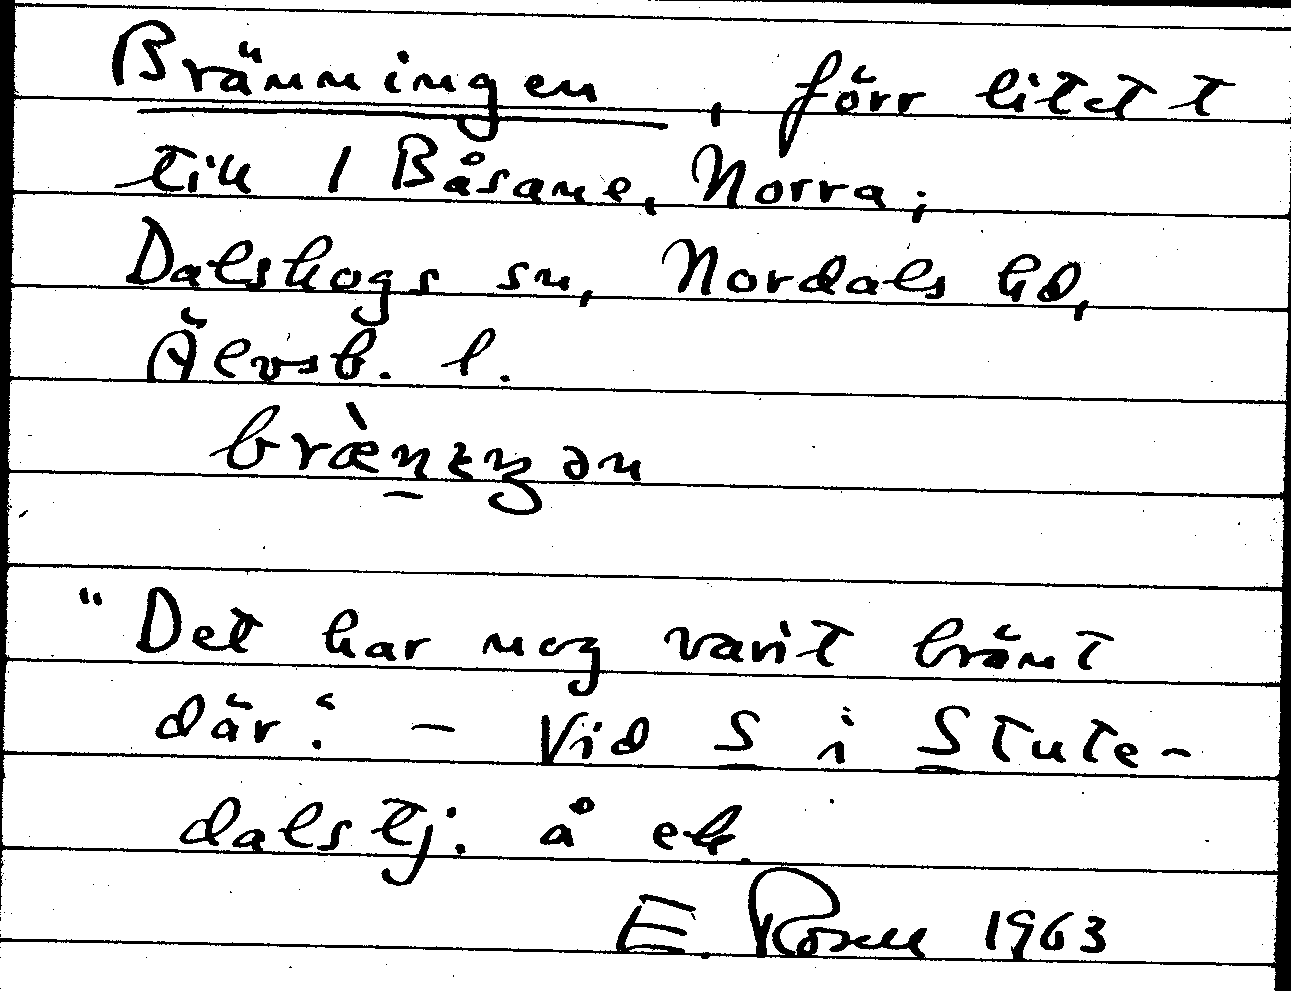 Bränningen, förr litet t
till 1 Båsane, Norra;
Dalskogs sn, Nordals hd,
Älvsb. l.
"Det har nog varit bränt
där." - Vid S i Stute-
dalstj. å ek.
E. Rosell 1963